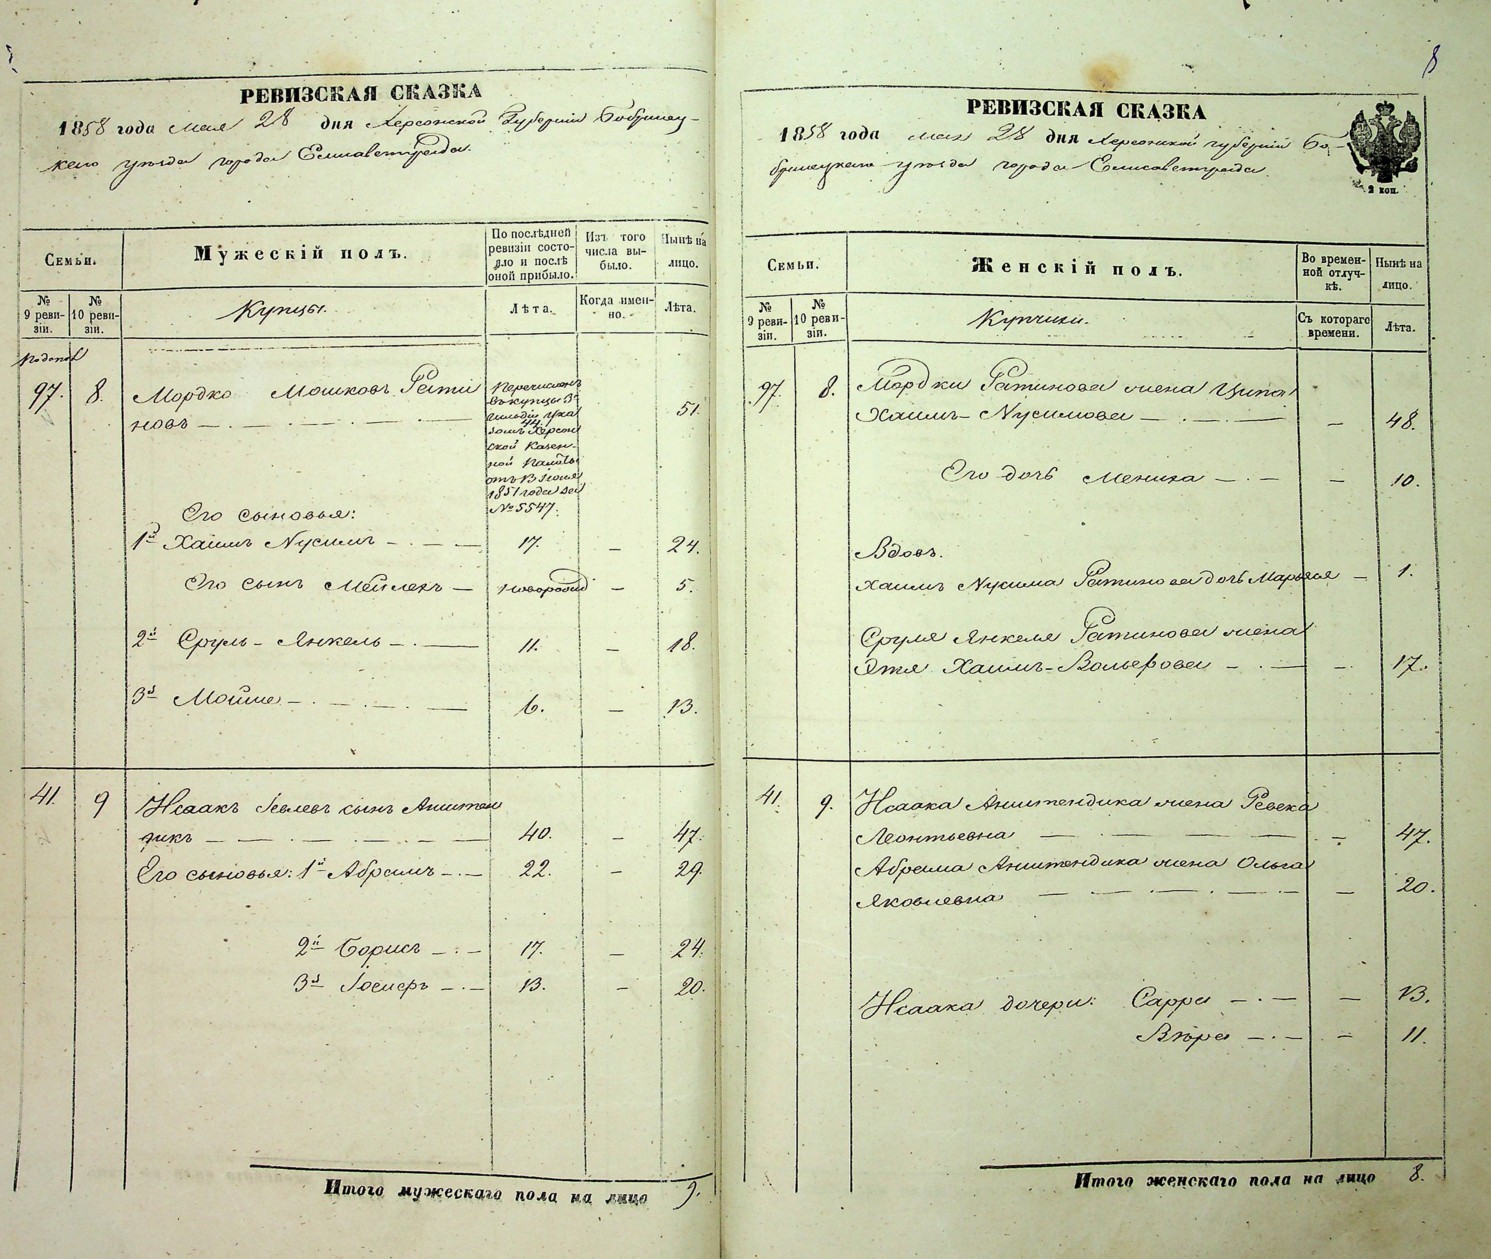 РЕВИЗСКАЯ СКАЗКА
1858 года мая 28 дня Херсонской Губерніи Бобринец-
каго уѣзда города Елисаветграда.
Семьи.
Мужескій полъ.
По послѣдней ревизіи состо-
яло и послѣ оной прибыло.
Изъ того числа вы-
было.
Нынѣ на лицо.
№ 9 реви-
зіи.
№ 10 реви-
зіи.
Купцы.
Лѣта.
Когда имен-
но.
Лѣта.
97. 8. Мордко Мошковъ Рати
новъ — 51.
Перечисленъ
въ купцы 3й
гильдіи ука
зомъ Херсон
ской Казен-
ной Палаты
отъ 13 Іюня
1851 года за
№ 5547.
Его сыновья:
1й Хаимъ Нусимъ — 17. — 24.
Его сынъ Мейлехъ — новорожд — 5.
2й Сруль-Янкель — 11. — 18.
3й Мойше — 6. — 13.
41. 9 Исаакъ Іевлевъ сынъ Анштен
дикъ — 40. — 47.
Его сыновья: 1й Абрамъ — 22. — 29.
2й Борисъ — 17. — 24.
3й Іосифъ — 13. — 20.
Итого мужескаго пола на лицо 9.
8
РЕВИЗСКАЯ СКАЗКА
1858 года мая 28 дня Херсонской губерніи Бо-
бринецкаго уѣзда города Елисаветграда
2 коп.
Семьи.
Женскій полъ.
Во времен-
ной отлуч-
кѣ.
Нынѣ на лицо.
№ 9 реви-
зіи.
№ 10 реви-
зіи.
Купчихи.
Съ котораго времени.
Лѣта.
97. 8. Мордки Ратинова жена Ципа
Хаимъ-Нусимова — 48.
Его дочь Меника — 10.
Вдовъ.
Хаимъ Нусима Ратинова дочь Марьяся — 1.
Сруля Янкеля Ратинова жена
Этя Хаимъ-Вольфова — 17.
41. 9. Исаака Анштендика жена Ревека
Леонтьевна — 47.
Абрама Анштендика жена Ольга
Яковлевна — 20.
Исаака дочери: Сарра — 13.
Вѣра — 11.
Итого женскаго пола на лицо 8.